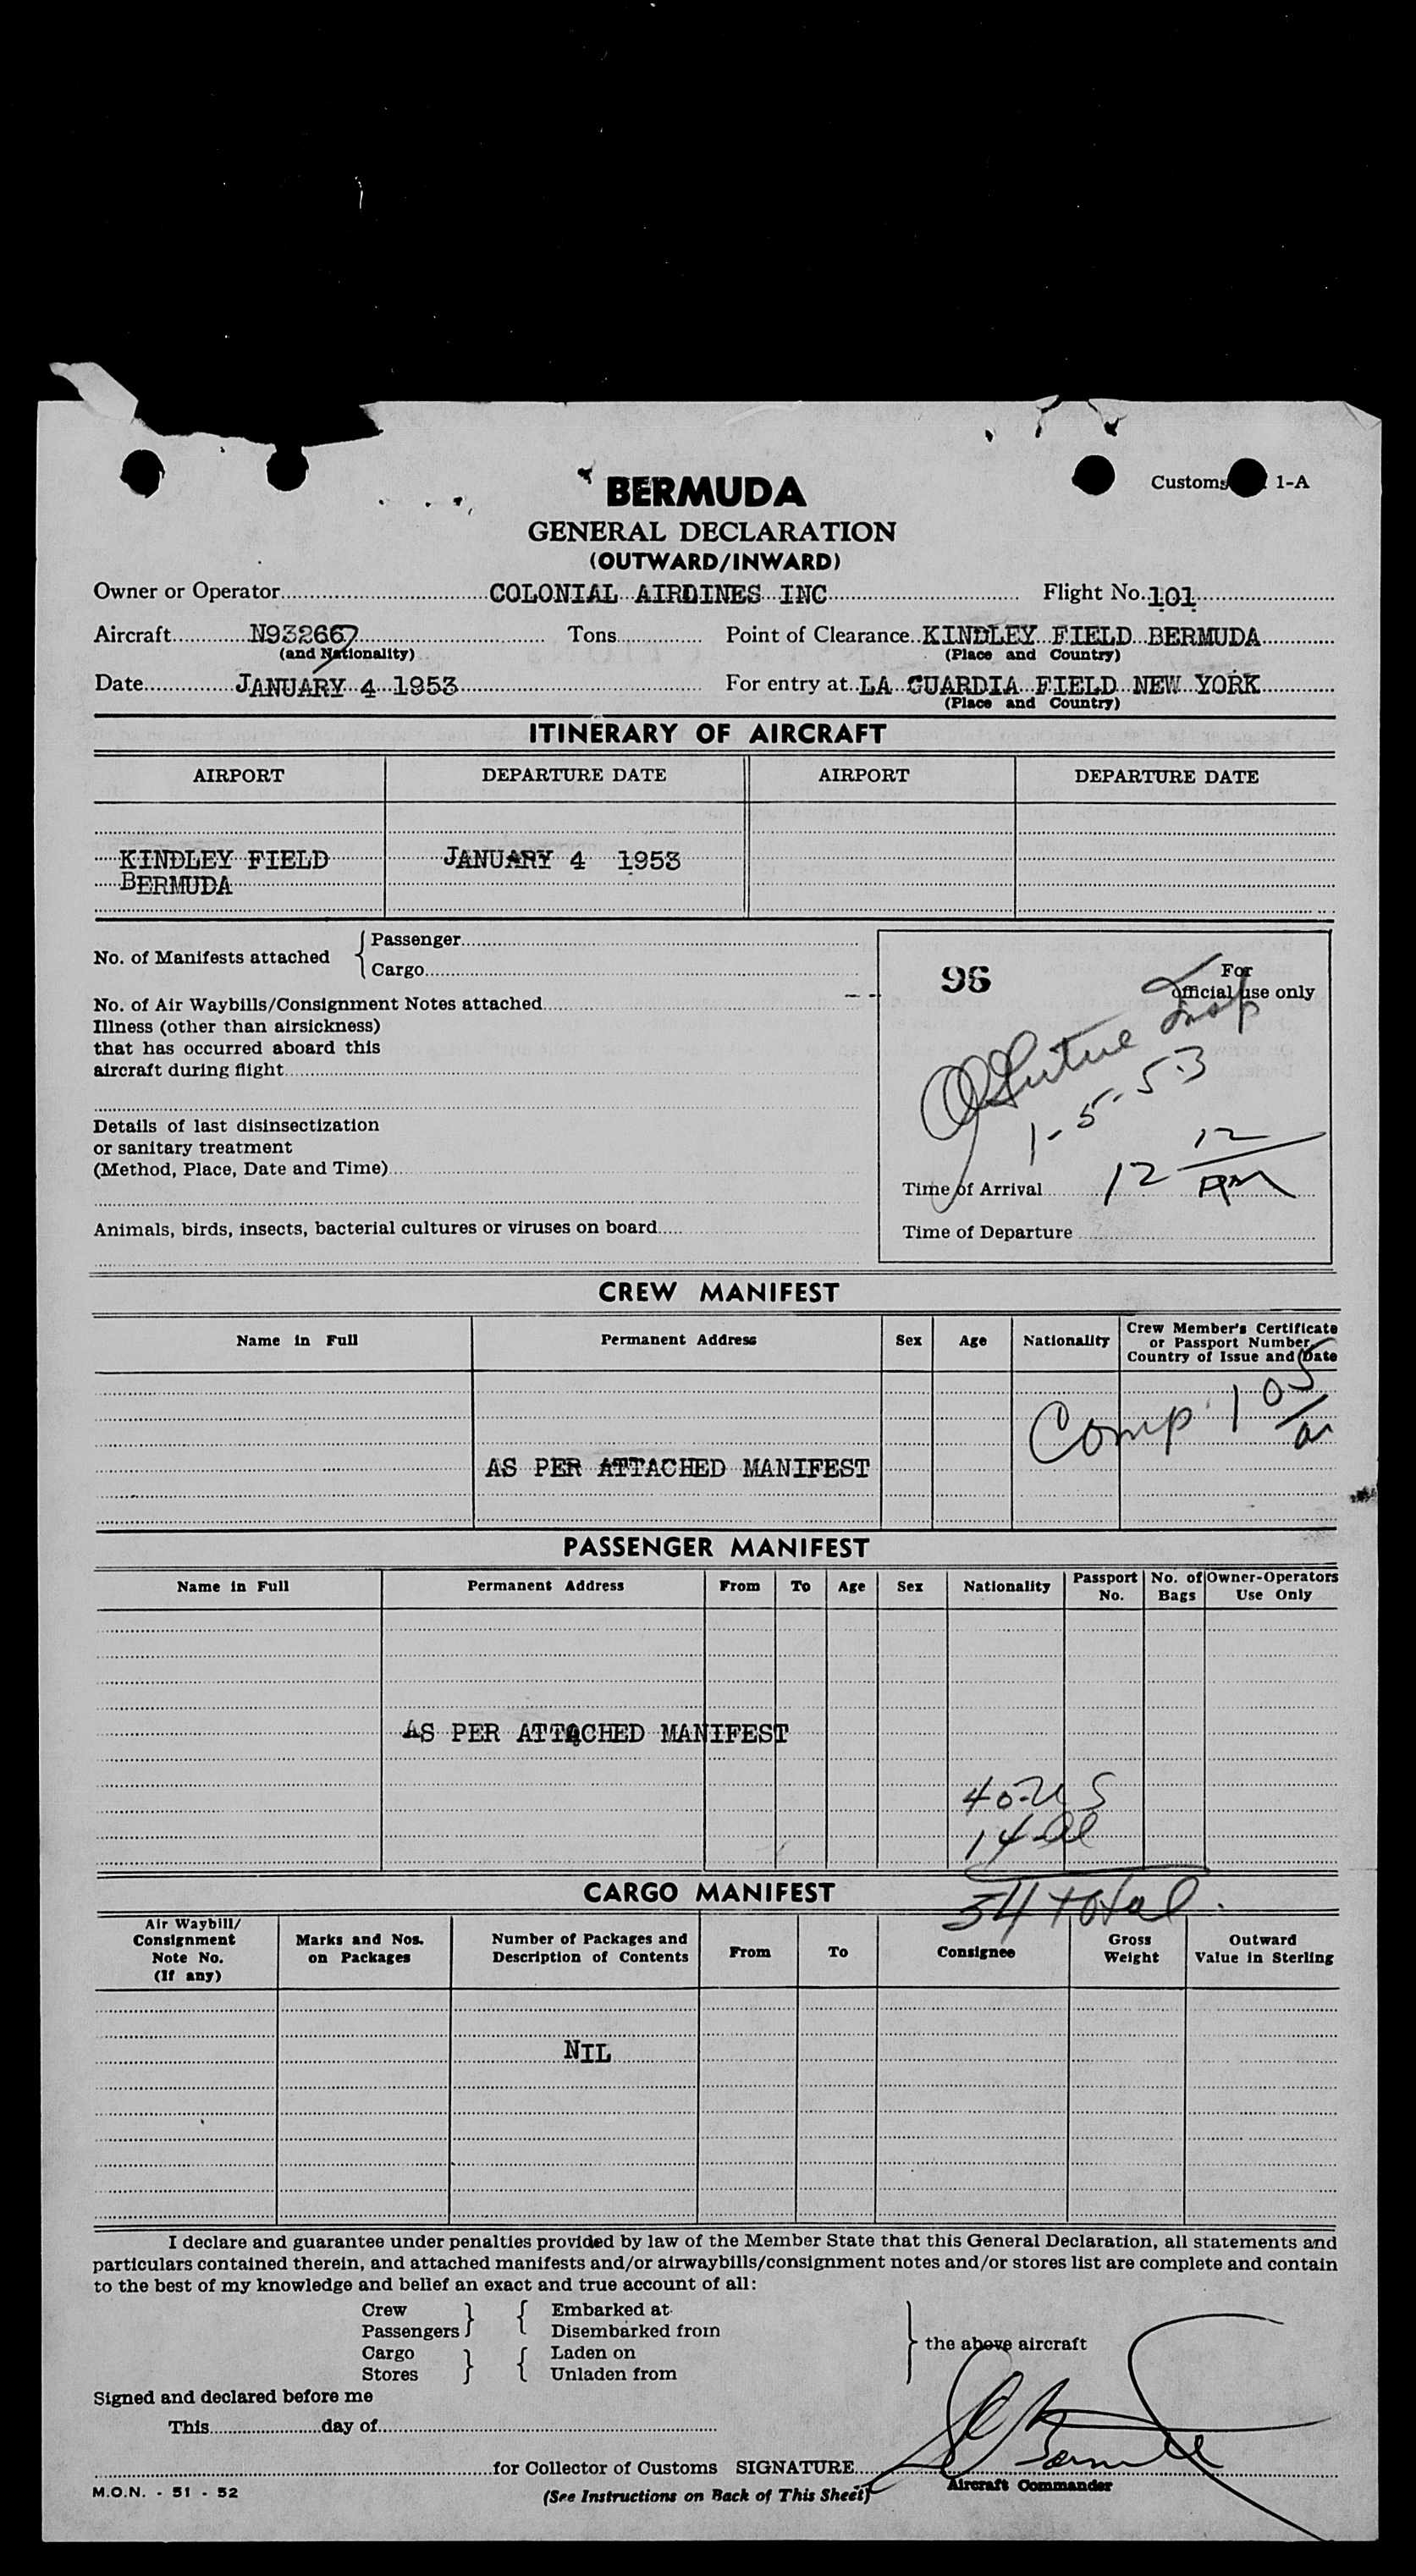 BERMUDA
Customs 1-A
GENERAL DECLARATION
(OUTWARD/INWARD)
Owner or Operator COLONIAL AIRLINES INC Flight No. 101
Aircraft N932667 Tons Point of Clearance KINDLEY FIELD BERMUDA
(and Nationality) (Place and Country)
Date JANUARY 4 1953 For entry at LA GUARDIA FIELD NEW YORK
(Place and Country)
ITINERARY OF AIRCRAFT
AIRPORT DEPARTURE DATE AIRPORT DEPARTURE DATE
KINDLEY FIELD JANUARY 4 1953
BERMUDA
No. of Manifests attached { Passenger
Cargo
No. of Air Waybills/Consignment Notes attached
Illness (other than airsickness)
that has occurred aboard this
aircraft during flight
Details of last disinsectization
or sanitary treatment
(Method, Place, Date and Time)
Animals, birds, insects, bacterial cultures or viruses on board
96 For
official use only
Insp
1-5-53
Time of Arrival 12 12/AM
Time of Departure
CREW MANIFEST
Name in Full Permanent Address Sex Age Nationality Crew Member's Certificate
or Passport Number
Country of Issue and Date
Comp 1 05/
AS PER ATTACHED MANIFEST
PASSENGER MANIFEST
Name in Full Permanent Address From To Age Sex Nationality Passport No. No. of Bags Owner-Operators Use Only
AS PER ATTACHED MANIFEST
40-US
14-al
54 total
CARGO MANIFEST
Air Waybill/
Consignment
Note No.
(If any)
Marks and Nos.
on Packages
Number of Packages and
Description of Contents
From To Consignee
Gross
Weight
Outward
Value in Sterling
NIL
I declare and guarantee under penalties provided by law of the Member State that this General Declaration, all statements and
particulars contained therein, and attached manifests and/or airwaybills/consignment notes and/or stores list are complete and contain
to the best of my knowledge and belief an exact and true account of all:
Crew } { Embarked at
Passengers Disembarked from
Cargo } { Laden on
Stores Unladen from
} the above aircraft
Signed and declared before me
This day of
for Collector of Customs SIGNATURE
Aircraft Commander
M.O.N. - 51 - 52
(See Instructions on Back of This Sheet)